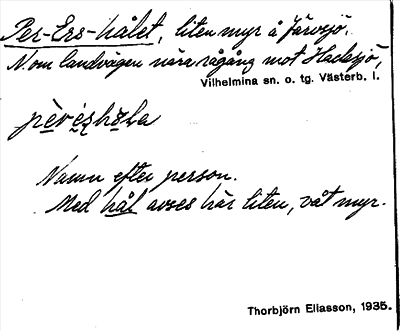 Per-Ers-hålet, liten myr å Järvsjö.
N. om landvägen nära rågång mot Hacksjö,
Vilhelmina sn. o. tg. Västerb. l.
Namn efter person.
Med hål avses här liten, våt myr.
Thorbjörn Eliasson, 1935.